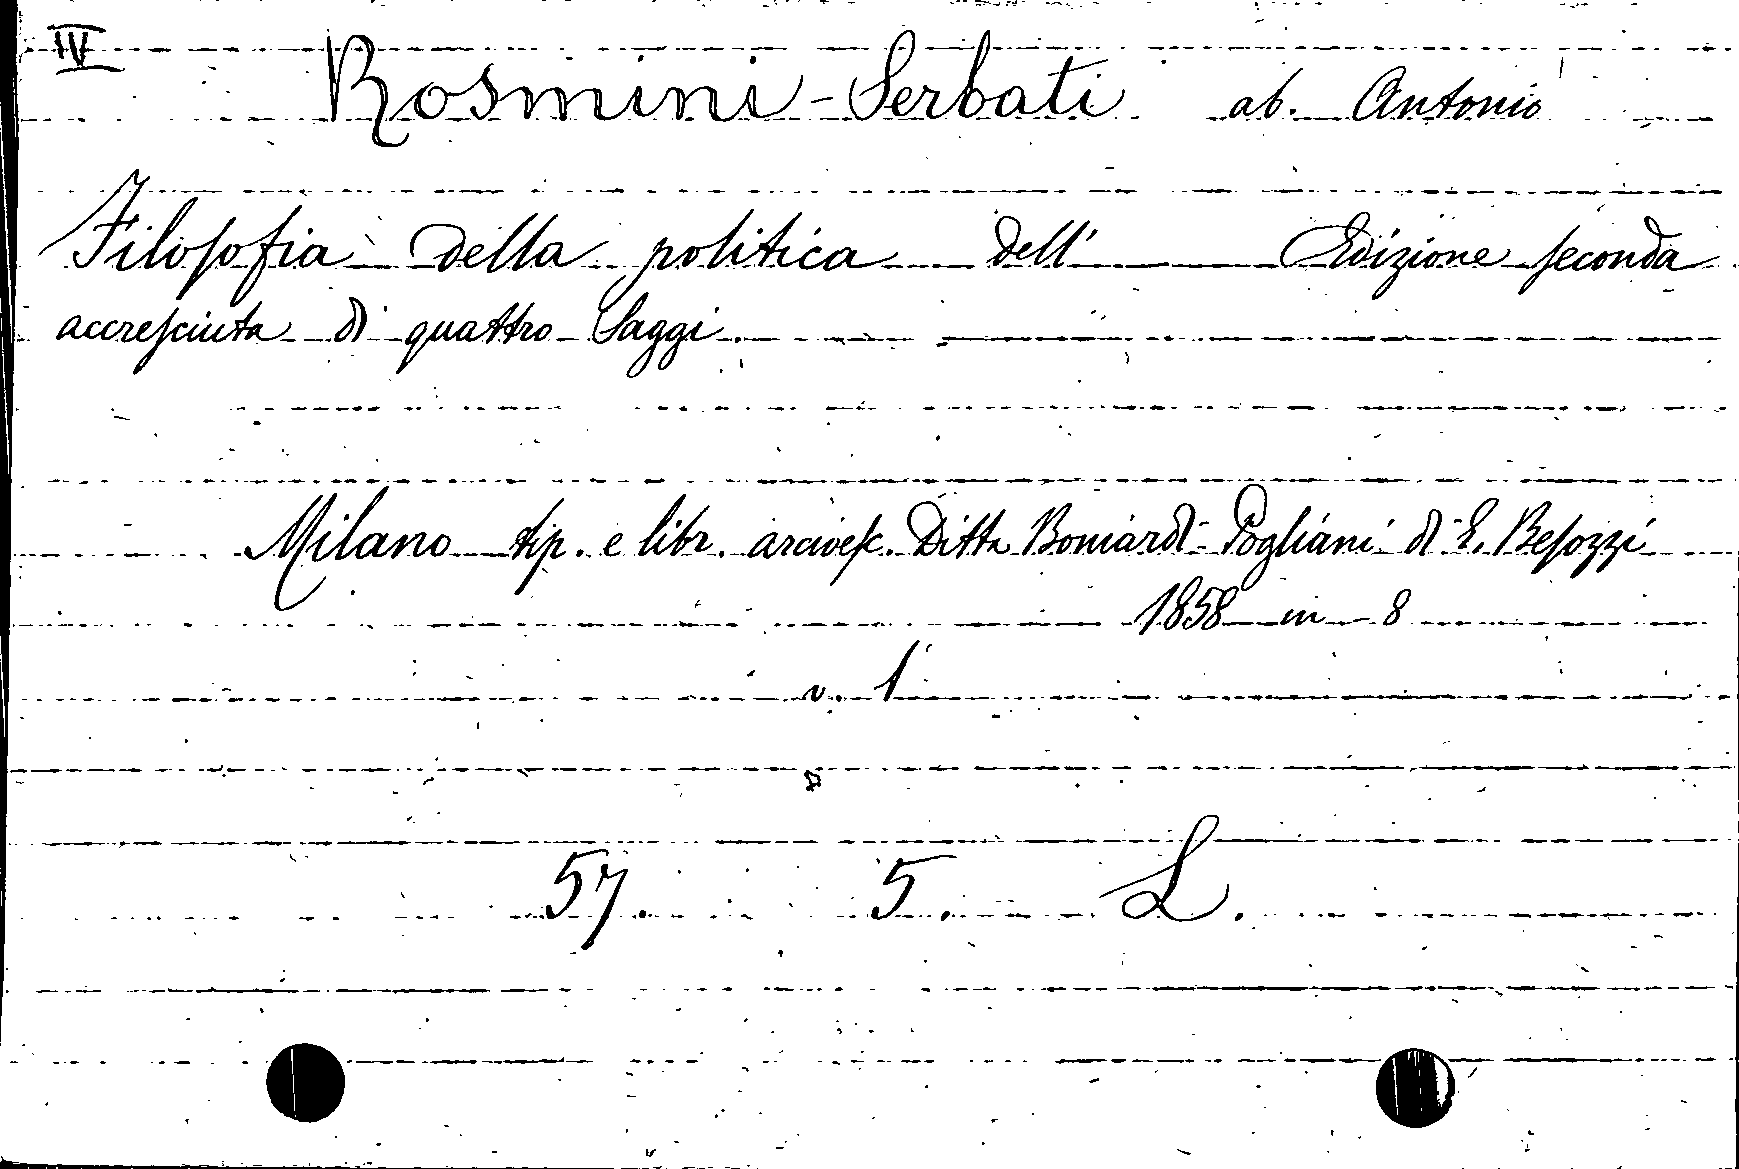 IV
Rosmini-Serbati ab. Antonio
Filosofia della politica dell' Edizione seconda
accresciuta di quattro Saggi.
Milano tip. e libr. arcivesc. Ditta Boniardi-Pogliani di E. Besozzi
1858 in 8
v. 1
57. 5. L.